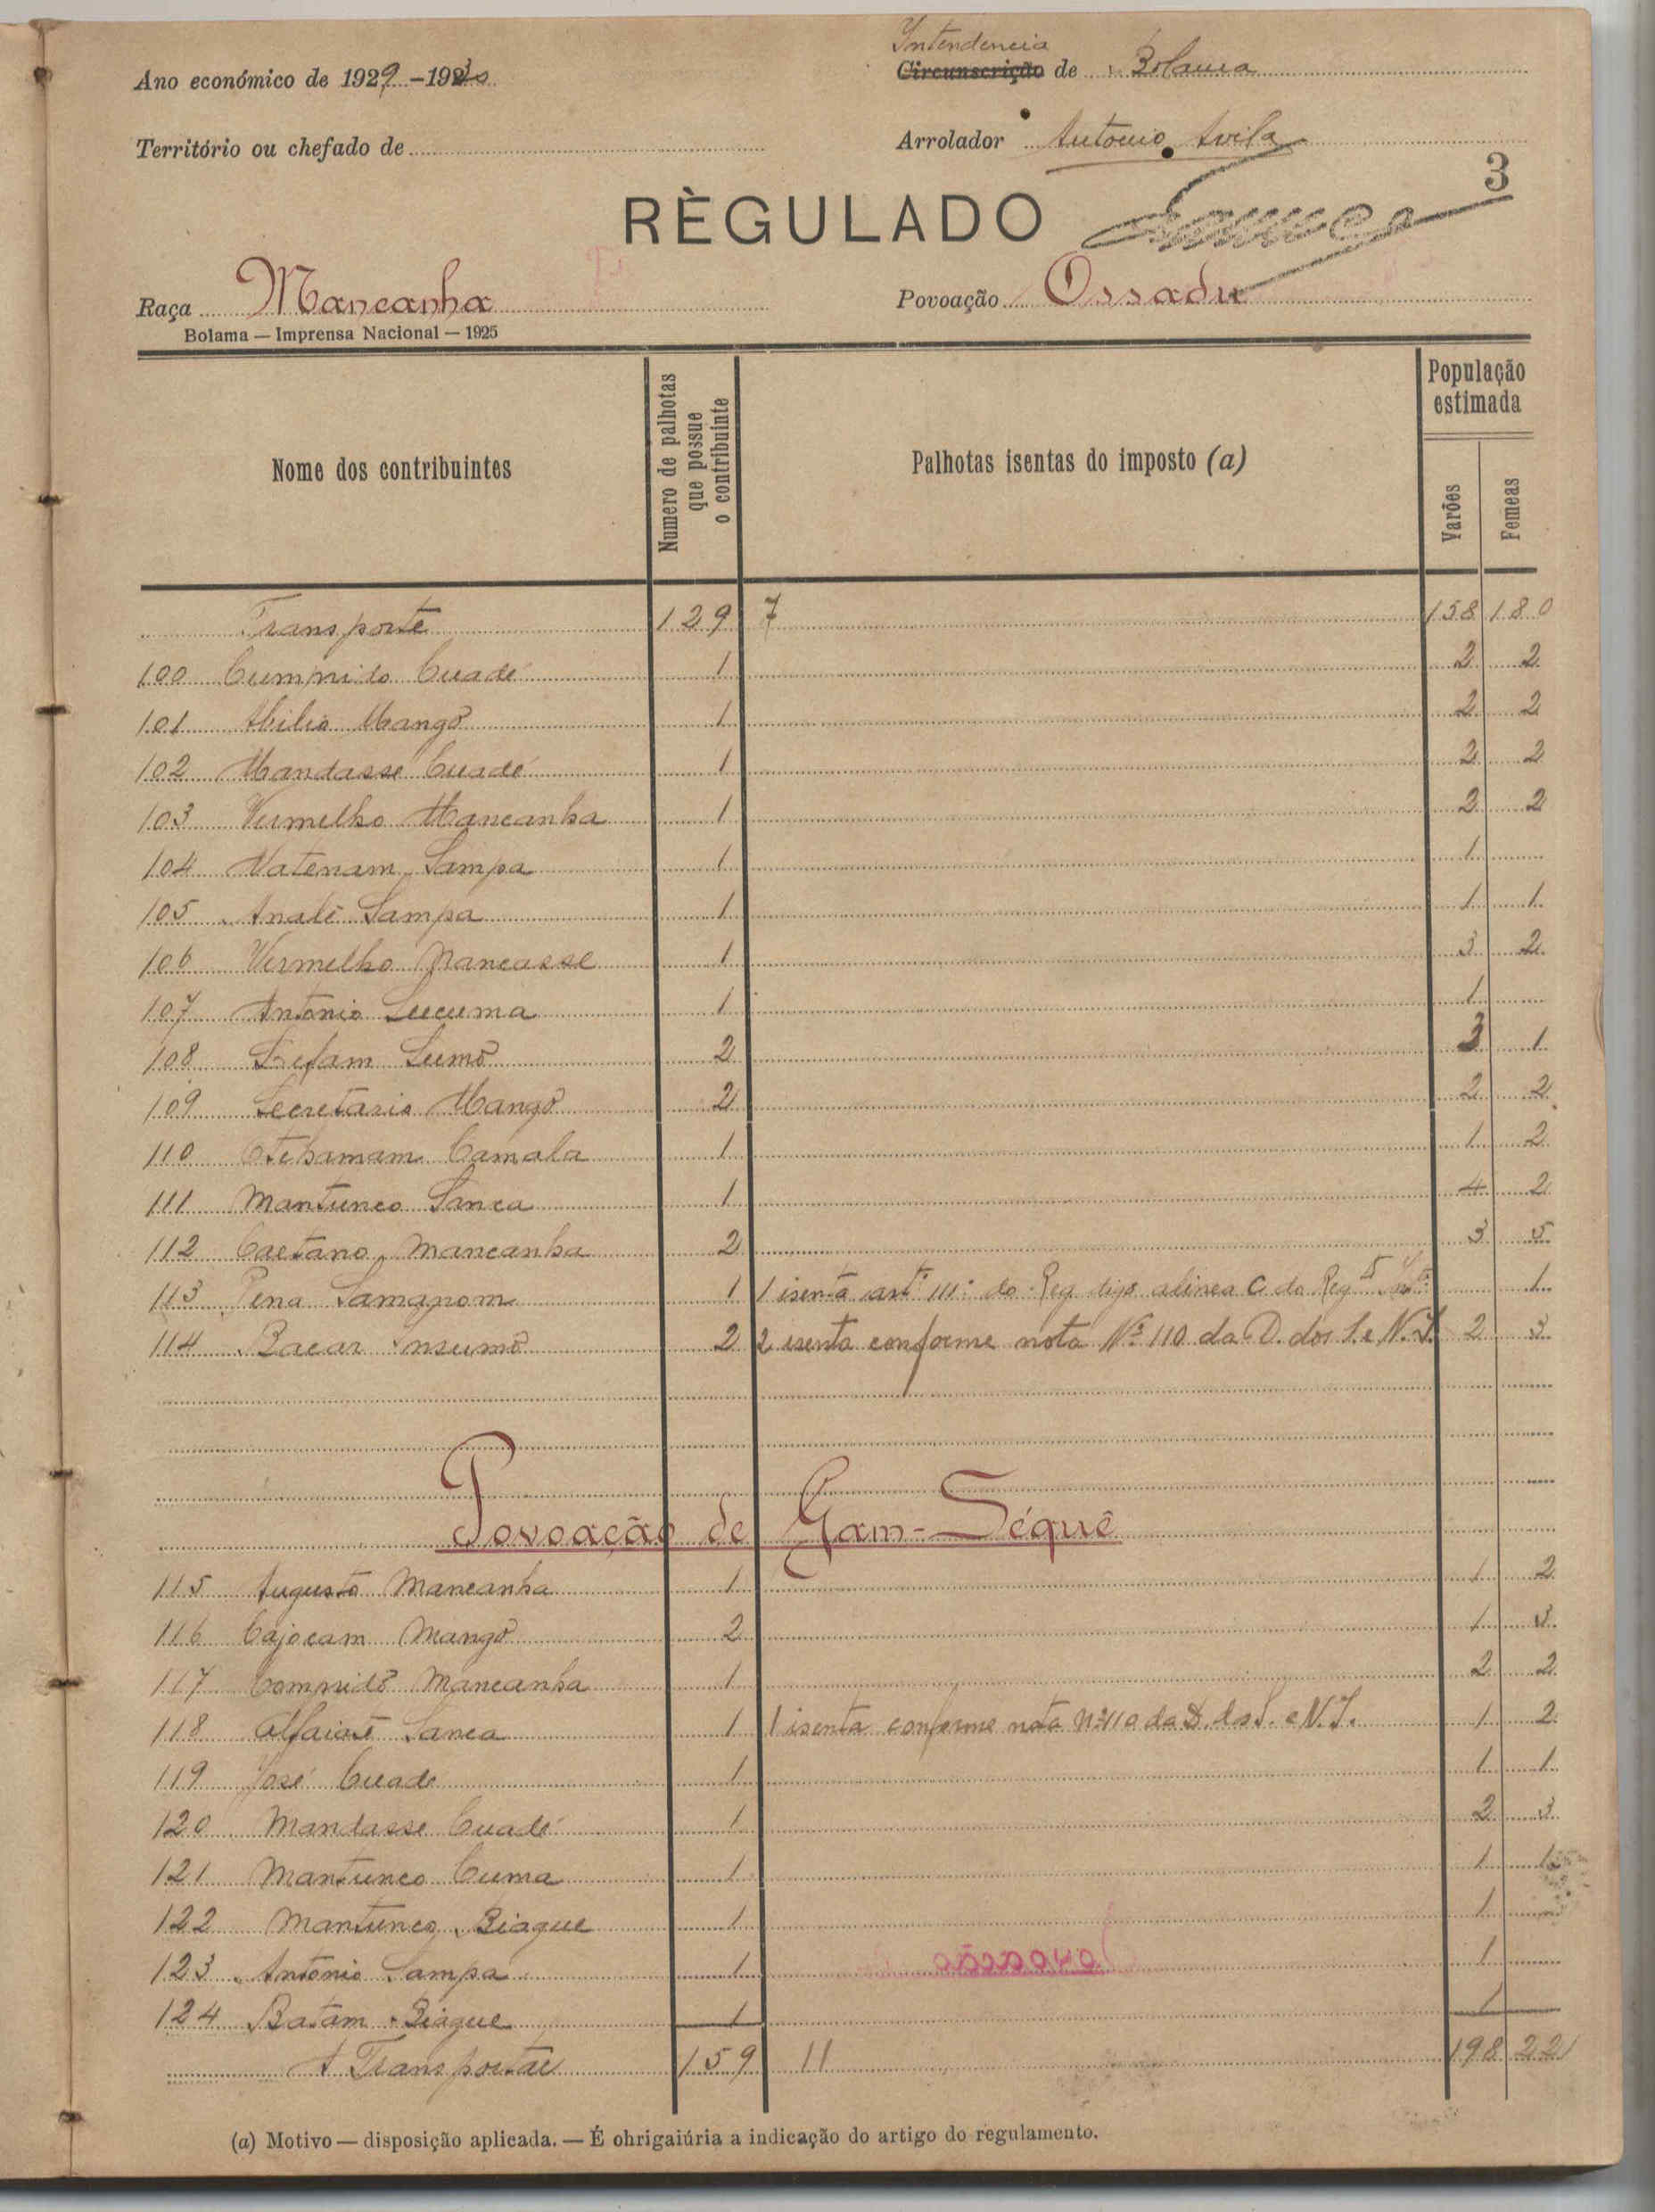 Intendencia
Ano económico de 1929-1930 Circunscrição de Bolama
Território ou chefado de Arrolador Antonio Avila
3
RÈGULADO
Raça Mancanha Povoação Ossadu
Bolama — Imprensa Nacional — 1925
Nome dos contribuintes Numero de palhotas que possue o contribuinte Palhotas isentas do imposto (a) População estimada Varões Femeas
Transporte 129 7 158 180
100 Cumprido Cuadé 1 2 2
101 Abilio Mangô 1 2 2
102 Mandasse Cuadé 1 2 2
103 Vermelho Mancanha 1 2 2
104 Natenam Sampa 1 1
105 Analé Sampa 1 1 1
106 Vermelho Mancasse 1 3 2
107 Antonio Lucuma 1 1
108 2 3 1
109 Secretario Mangô 2 2 2
110 Camala 1 1 2
111 Mantunco Sanca 1 4 2
112 Caetano Mancanha 2 3 5
113 Pena 1 1 isenta artº 111º do Reg. digo alinea C do Reg 1
114 Bacar Insumô 2 2 isenta conforme nota Nº 110 da D. dos S. e N. I. 2 3
Povoação de Gam-Séquê
115 Augusto Mancanha 1 1 2
116 Cajocam Mangô 2 1 3
117 Comprido Mancanha 1 2 2
118 Alfaiate Sanca 1 1 isenta conforme nota nº 110 da D. dos S. e N. I. 1 2
119 José Cuadé 1 1 1
120 Mandasse Cuadé 1 2 3
121 Mantunco Cuma 1 1 1
122 Mantunco Biague 1 1
123 Antonio Sampa 1 1
124 Batam Biague 1 1
A Transportar 159 11 198 221
(a) Motivo — disposição aplicada. — É ohrigaiúria a indicação do artigo do regulamento.